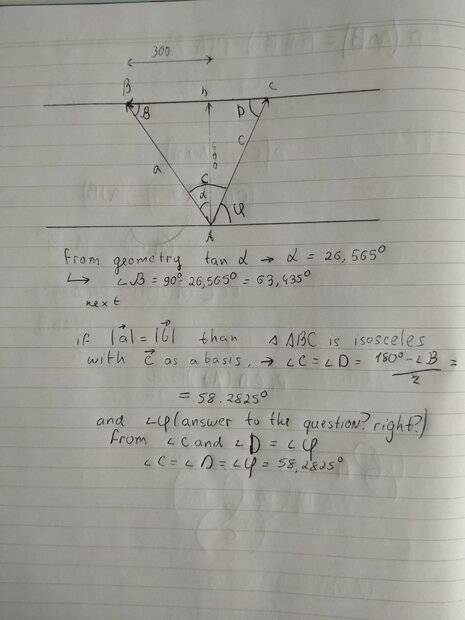 300
B h C
B D
a 600 c
C
α
φ
A
from geometry tan α → α = 26,565°
↳ ∠B = 90° - 26,565° = 63,435°
next
if |a⃗| = |b⃗| than △ ABC is isosceles
with c⃗ as a basis, → ∠C = ∠D = (180° - ∠B)/2 =
= 58.2825°
and ∠φ (answer to the question? right?)
from ∠C and ∠D = ∠φ
∠C = ∠D = ∠φ = 58,2825°